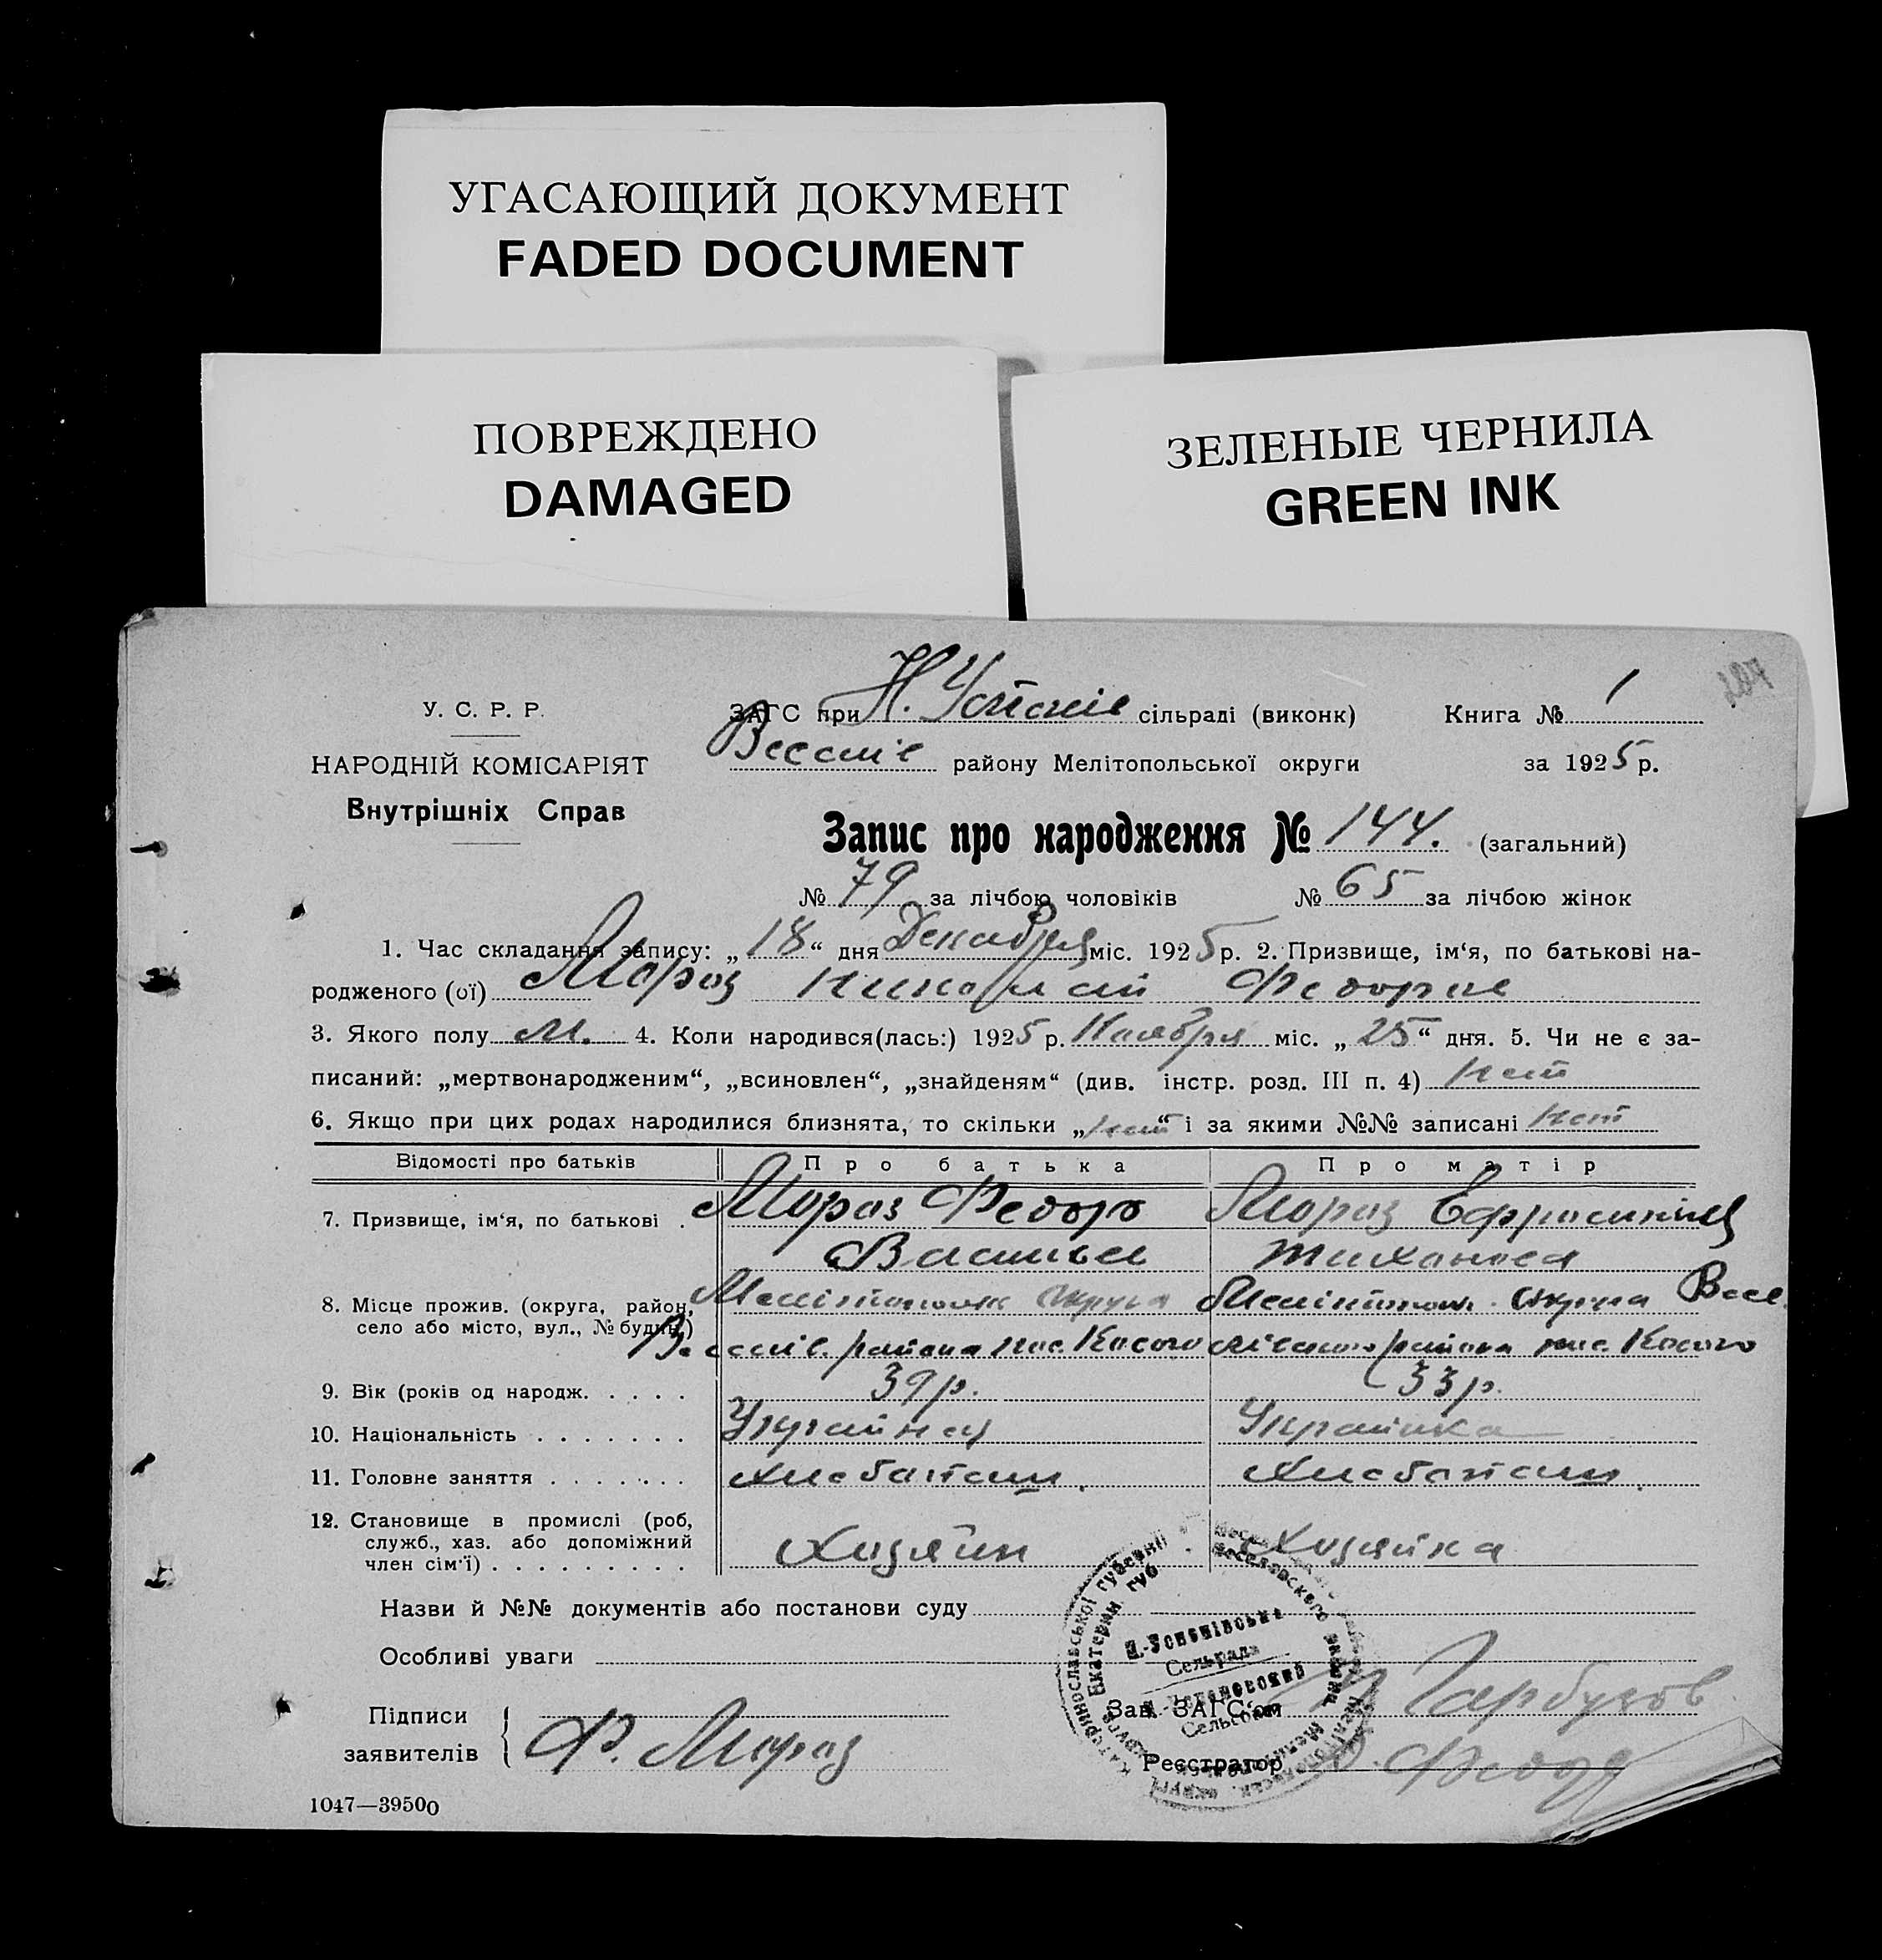 УГАСАЮЩИЙ ДОКУМЕНТ
FADED DOCUMENT
ПОВРЕЖДЕНО
DAMAGED
ЗЕЛЕНЫЕ ЧЕРНИЛА
GREEN INK
У. С. Р. Р.
НАРОДНІЙ КОМІСАРІЯТ
Внутрішніх Справ
ЗАГС при Н. сільраді (виконк) Книга № 1
району Мелітопольської округи за 1925 р.
Запис про народження № 144. (загальний)
№ 79 за лічбою чоловіків № 65 за лічбою жінок
1. Час складання запису: „18“ дня Декабря міс. 1925 р. 2. Призвище, ім‘я, по батькові на-
родженого (ої) Мороз Николай
3. Якого полу М. 4. Коли народився(лась:) 1925 р. Ноября міс. „25“ дня. 5. Чи не є за-
писаний: „мертвонародженим“, „всиновлен“, „знайденям“ (див. інстр. розд. III п. 4) нет
6. Якщо при цих родах народилися близнята, то скільки „нет“ і за якими №№ записані нет
Відомості про батьків Про батька Про матір
7. Призвище, ім‘я, по батькові . Мороз Федор Мороз
8. Місце прожив. (округа, район, округа округа
село або місто, вул., № будин.) района района
9. Вік (років од народж. . . . . 39 р. 33 р.
10. Національність . . . . . . . Украинка
11. Головне заняття . . . . . . .
12. Становище в промислі (роб, служб., хаз. або допоміжний член сім‘ї) . . . . . . . . . Хозяин Хозяйка
Назви й №№ документів або постанови суду
Особливі уваги
Сельрада
Підписи
заявителів Ф. Мороз
Зав. ЗАГС‘ом Гарбузов
Реєстратор
1047—39500